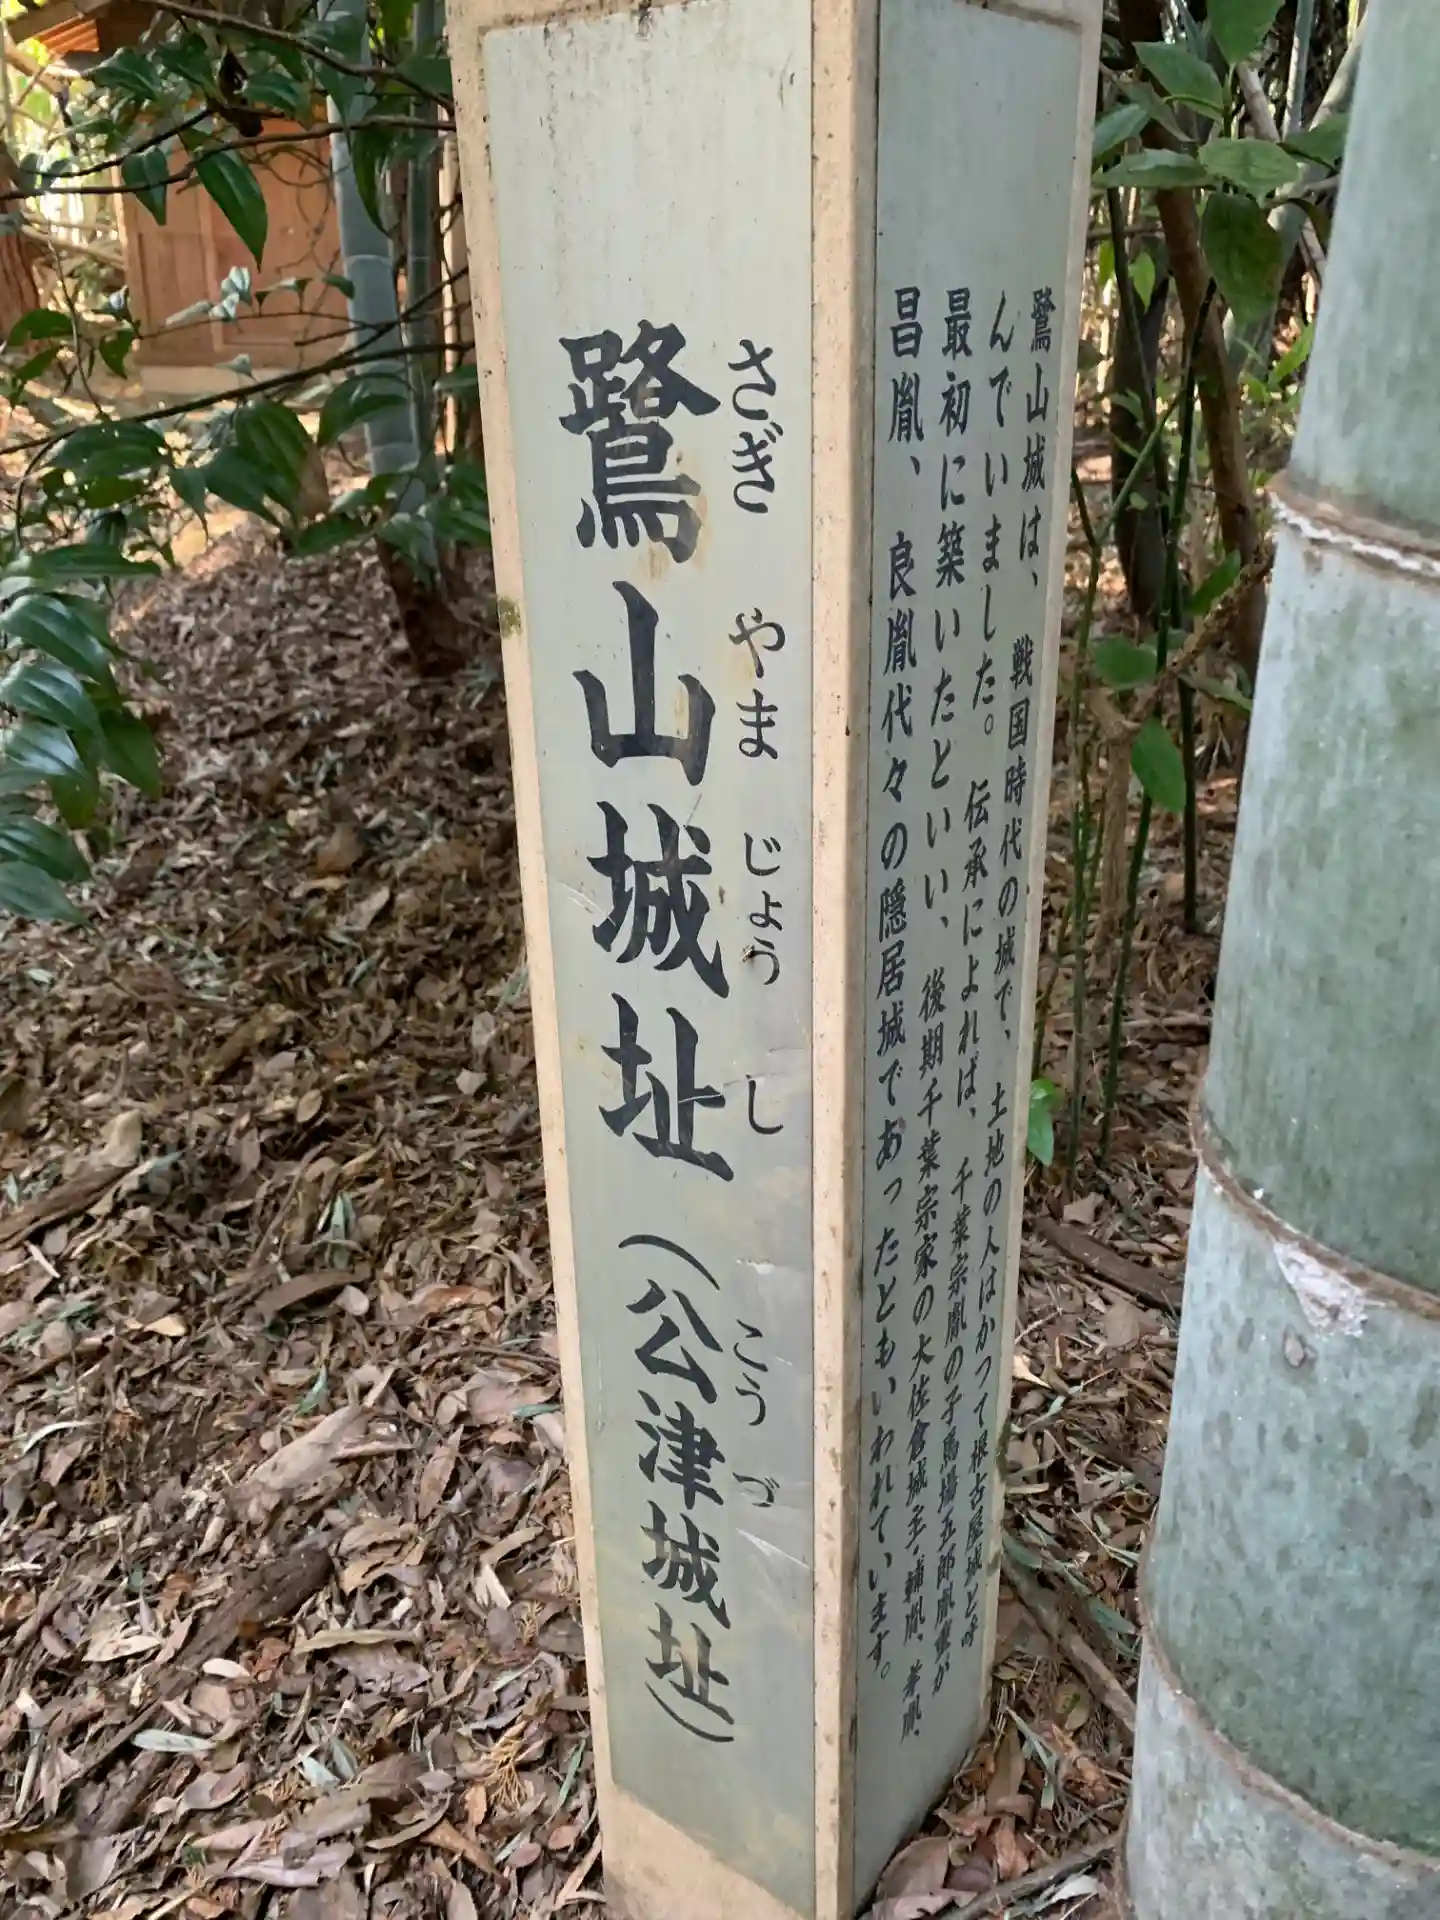 鷺山城址(公津城址)
さぎ やま じょう し こう づ
鷺山城は、戦国時代の城で、土地の人はかつて根古屋城と呼
んでいました。伝承によれば、千葉宗胤の子馬場五郎胤重が
最初に築いたといい、後期千葉宗家の大佐倉城主・輔胤、孝胤、
昌胤、良胤代々の隠居城であったともいわれています。